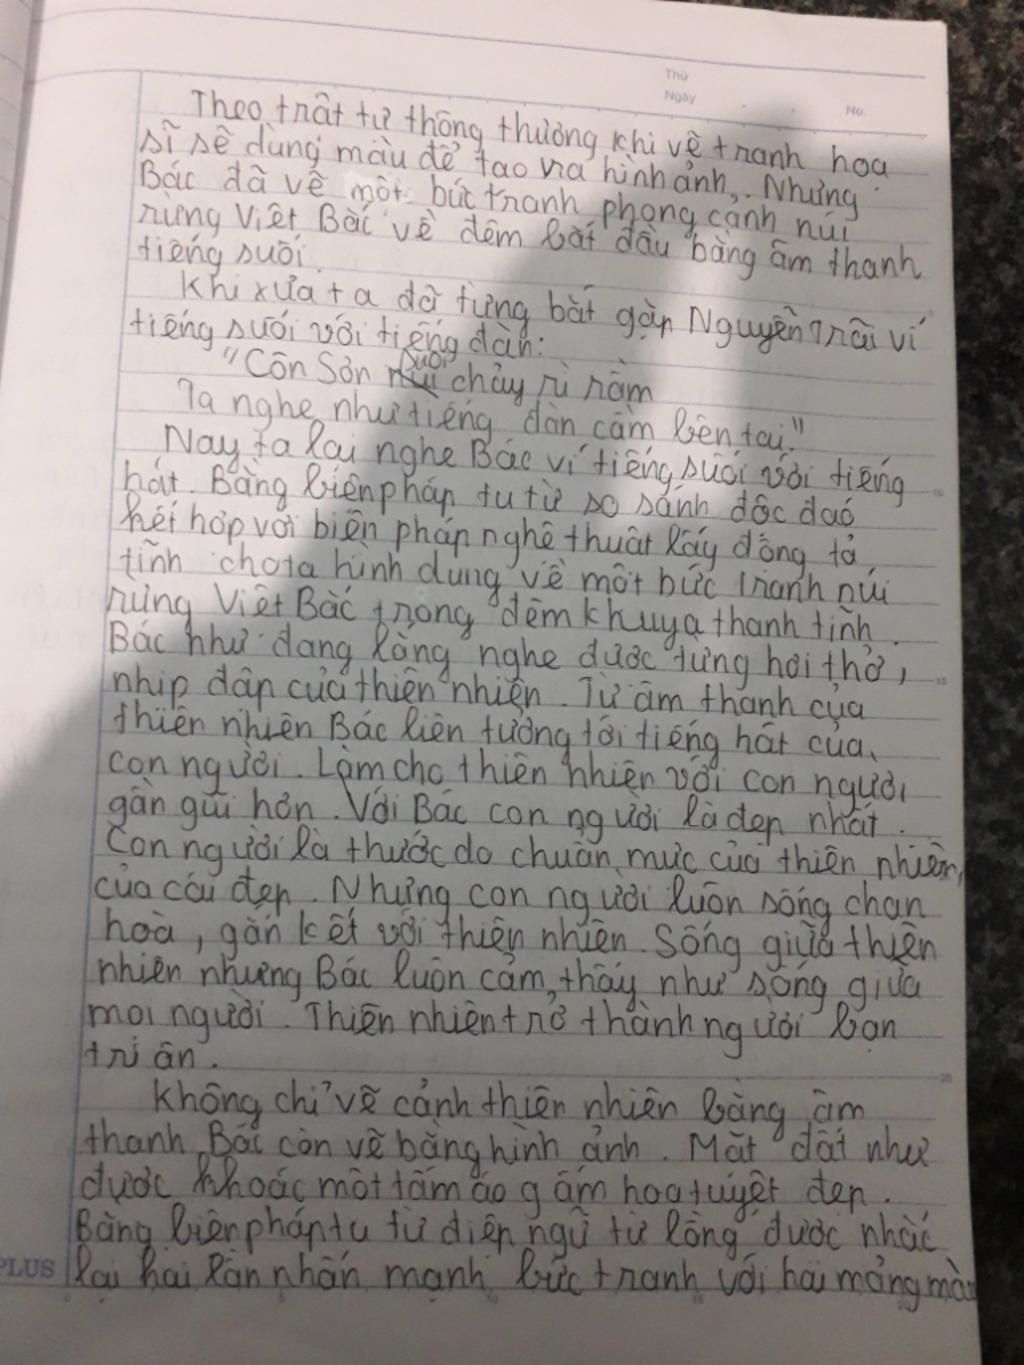 Thứ
Ngày
No.
Theo trật tự thông thường khi vẽ tranh hoạ
sĩ sẽ dùng màu để tạo ra hình ảnh. Nhưng
Bác đã vẽ một bức tranh phong cảnh núi
rừng Việt Bắc về đêm bắt đầu bằng âm thanh
tiếng suối.
Khi xưa ta đã từng bắt gặp Nguyễn Trãi ví
tiếng suối với tiếng đàn:
"Côn Sơn suối chảy rì rầm
Ta nghe như tiếng đàn cầm bên tai."
Nay ta lại nghe Bác ví tiếng suối với tiếng
hát. Bằng biện pháp tu từ so sánh độc đáo
kết hợp với biện pháp nghệ thuật lấy động tả
tĩnh cho ta hình dung về một bức tranh núi
rừng Việt Bắc trong đêm khuya thanh tịnh.
Bác như đang lắng nghe được từng hơi thở,
nhịp đập của thiên nhiên. Từ âm thanh của
thiên nhiên Bác liên tưởng tới tiếng hát của
con người. Làm cho thiên nhiên với con người
gần gũi hơn. Với Bác con người là đẹp nhất.
Con người là thước đo chuẩn mực của thiên nhiên,
của cái đẹp. Nhưng con người luôn sống chan
hoà, gắn kết với thiên nhiên. Sống giữa thiên
nhiên nhưng Bác luôn cảm thấy như sống giữa
mọi người. Thiên nhiên trở thành người bạn
tri ân.
Không chỉ vẽ cảnh thiên nhiên bằng âm
thanh, Bác còn vẽ bằng hình ảnh. Mặt đất như
được khoác một tấm áo gấm hoa tuyệt đẹp.
Bằng biện pháp tu từ điệp ngữ từ lồng được nhắc
PLUS
lại hai lần nhấn mạnh bức tranh với hai mảng màu